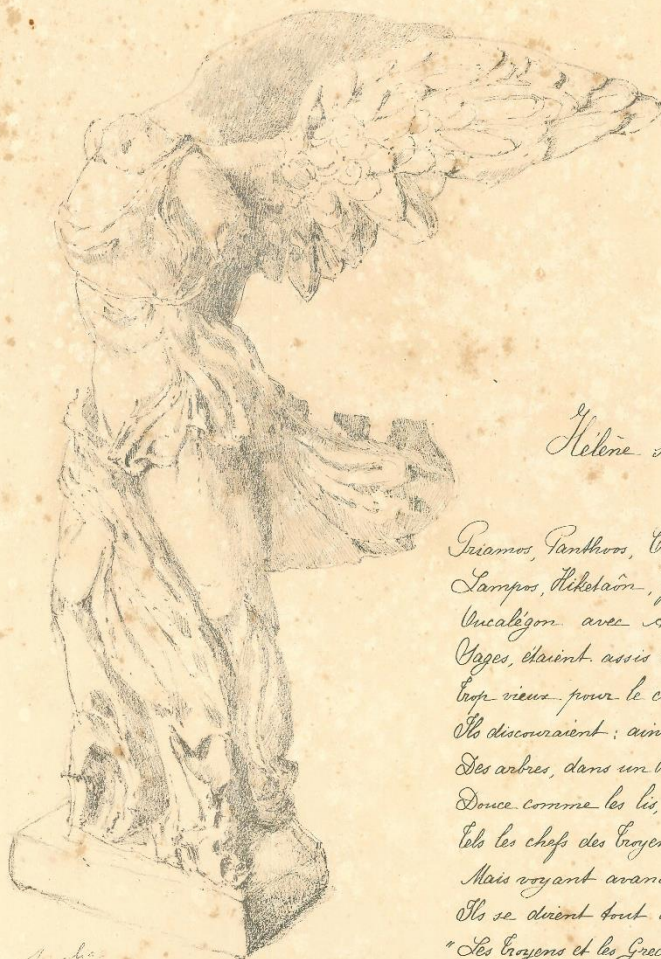 Hélène
Priamos, Panthoos,
Lampos, Hiketaôn,
Oucalégon avec
Sages, étaient assis
Trop vieux pour le
Ils discouraient :
Des arbres, dans un
Douce comme les lis,
Tels les chefs des Troyens
Mais voyant
Ils se dirent tout
"Les Troyens et les